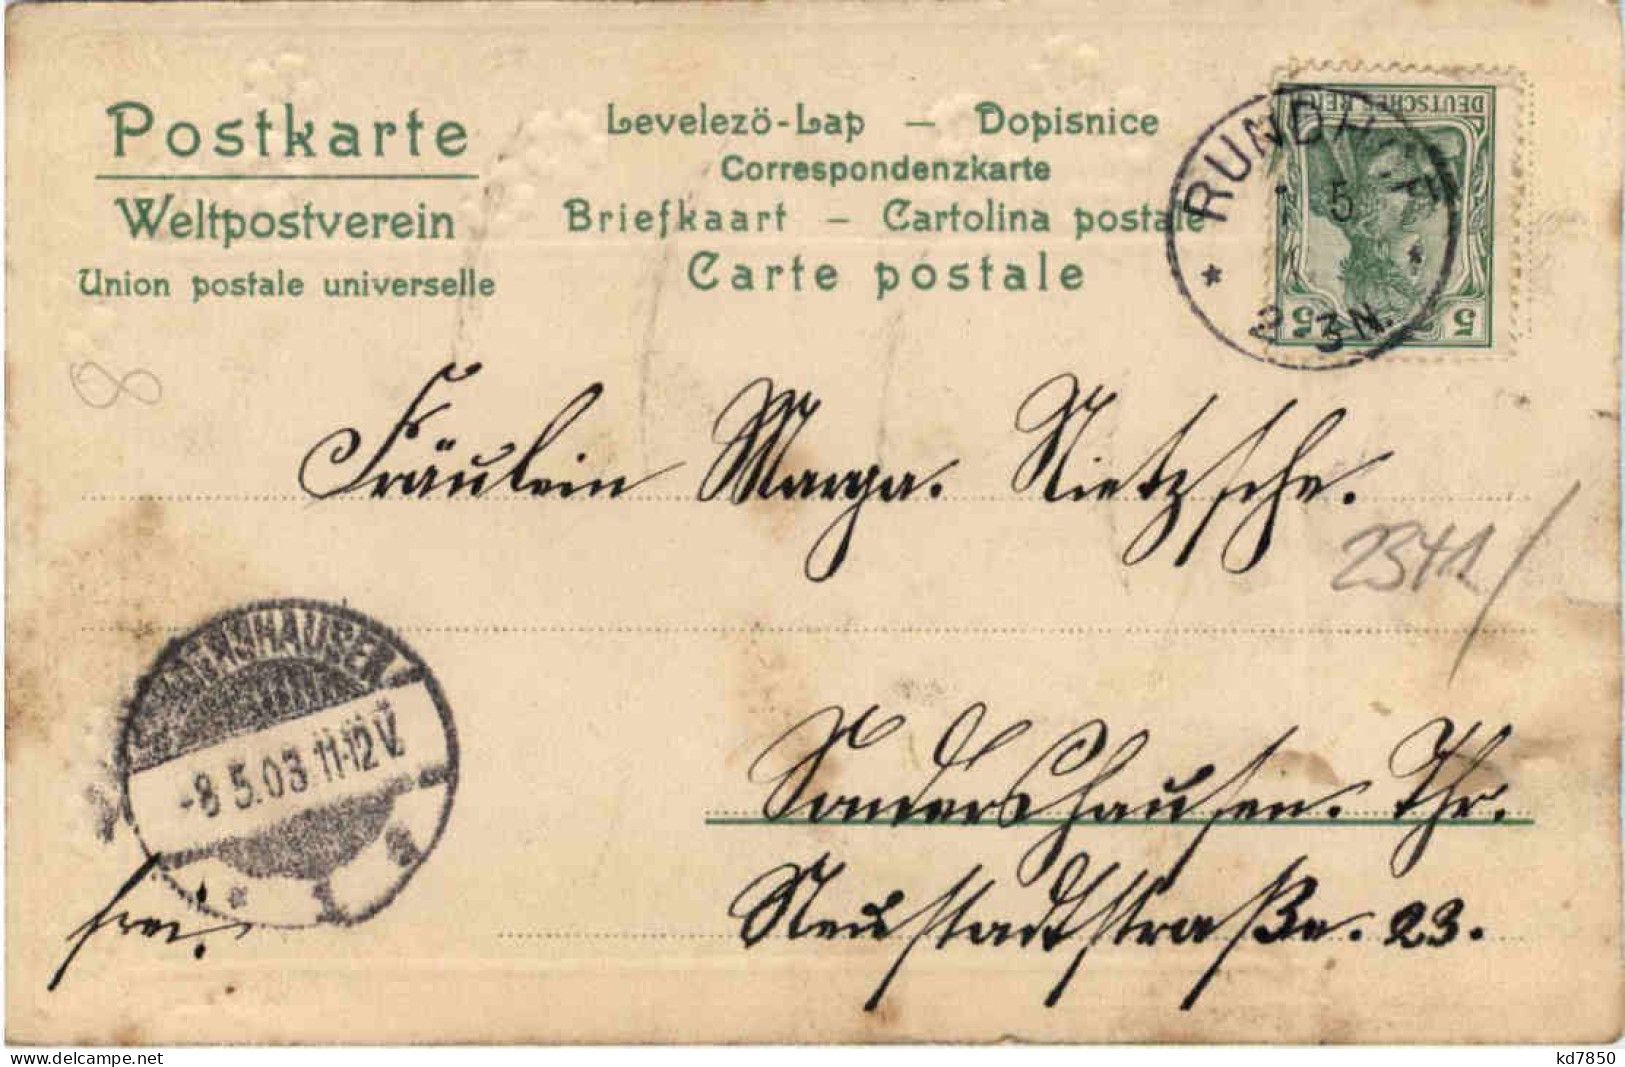 Postkarte
Weltpostverein
Union postale universelle
Levelezö-Lap — Dopisnice
Correspondenzkarte
Briefkaart — Cartolina postale
Carte postale
DEUTSCHES REICH
5 5
5
2-3N.
Fräulein Marga. Nietzsche.
2341
8
-8 5.03 11-12V.
Sondershausen. Thr.
Neustadtstraße. 23.
frei!
kd7850